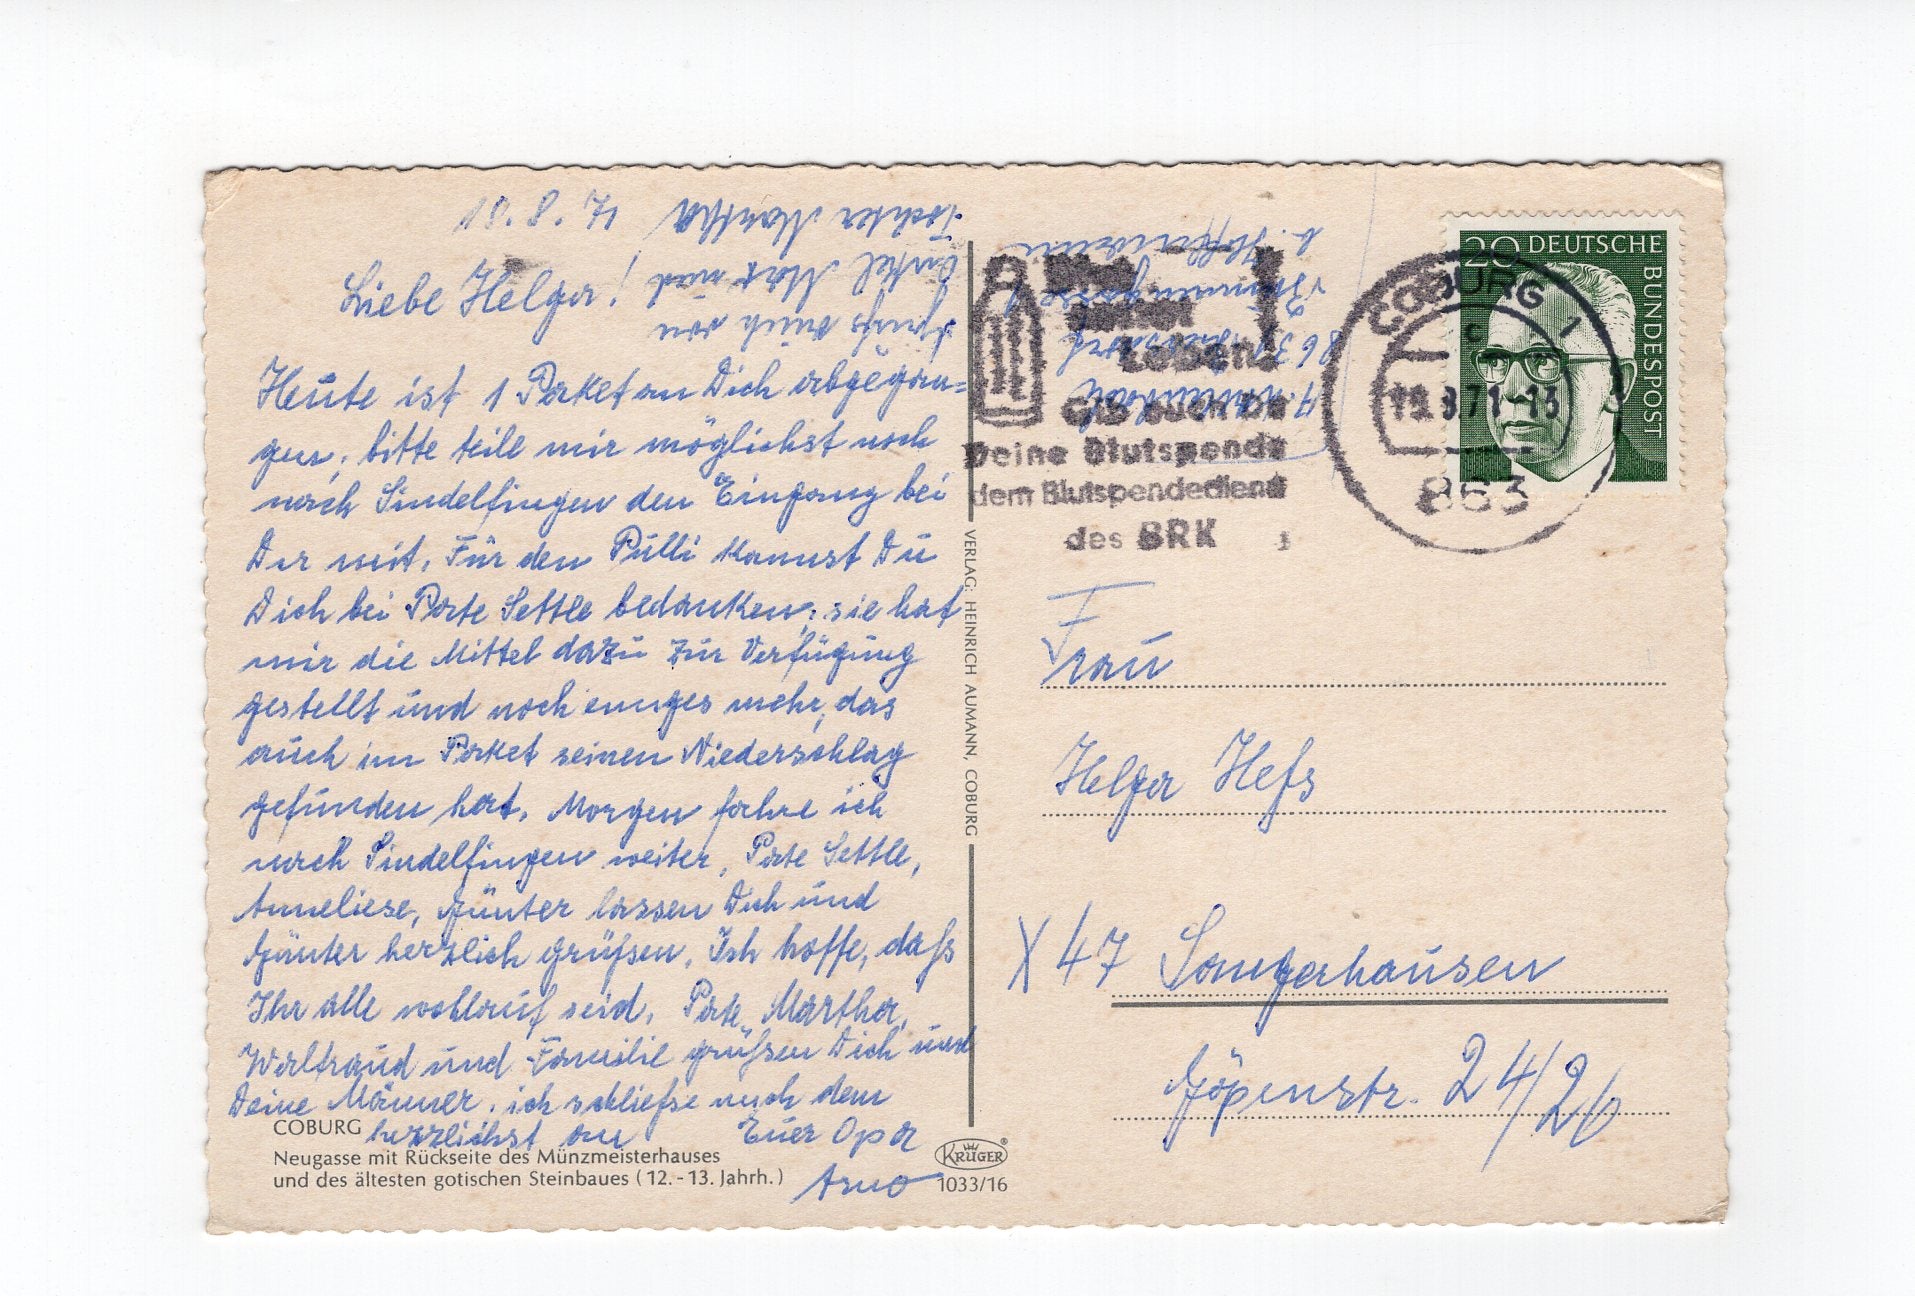 18.8.71
Liebe Helga!
Heute ist 1 Paket an Dich abgegan=
gen, bitte teile mir möglichst noch
nach Sindelfingen den Eingang bei
Dir mit. Für den Pulli kannst Du
Dich bei Pate Settle bedanken, sie hat
mir die Mittel dazu zur Verfügung
gestellt und noch einiges mehr, das
auch im Paket seinen Niederschlag
gefunden hat. Morgen fahre ich
nach Sindelfingen weiter, Pate Settle,
Anneliese, Günter lassen Dich und
Günter herzlich grüßen. Ich hoffe, daß
Ihr alle wohlauf seid. Pate Martha,
Waltraud und Familie grüßen Dich und
Deine Männer. ich schließe mich dem
herzlichst an Euer Opa
Arno
Gruß auch von
Onkel Max und
Tochter
COBURG
Neugasse mit Rückseite des Münzmeisterhauses
und des ältesten gotischen Steinbaues (12.-13. Jahrh.)
VERLAG: HEINRICH AUMANN, COBURG
KRÜGER
1033/16
863
Leben
Gib auch Du
Deine Blutspende
dem Blutspendedienst
des BRK
COBURG 1
c
19.8.71-13
863
20 DEUTSCHE
BUNDESPOST
Frau
Helga Heß
X 47 Sangerhausen
Göpenstr. 24/26